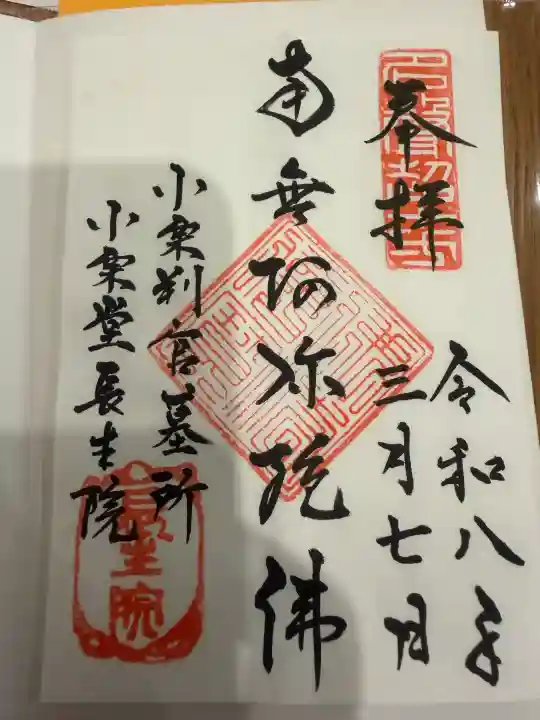 奉拝
令和八年
三月七日
南無阿弥陀佛
小栗判官墓所
小栗堂長生院
長生院